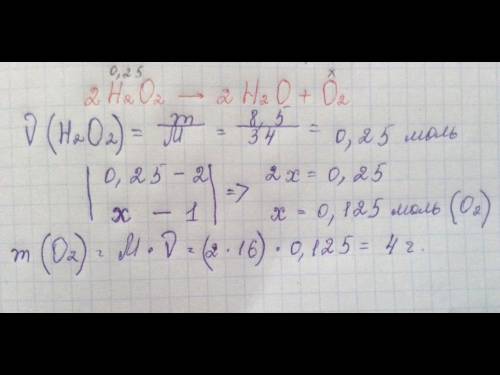 0,25 x
2 H₂O₂ → 2 H₂O + O₂
ν (H₂O₂) = m/M = 8,5/34 = 0,25 моль
| 0,25 – 2 | => 2x = 0,25
| x – 1 | x = 0,125 моль (O₂)
m (O₂) = M · ν = (2 · 16) · 0,125 = 4 г.